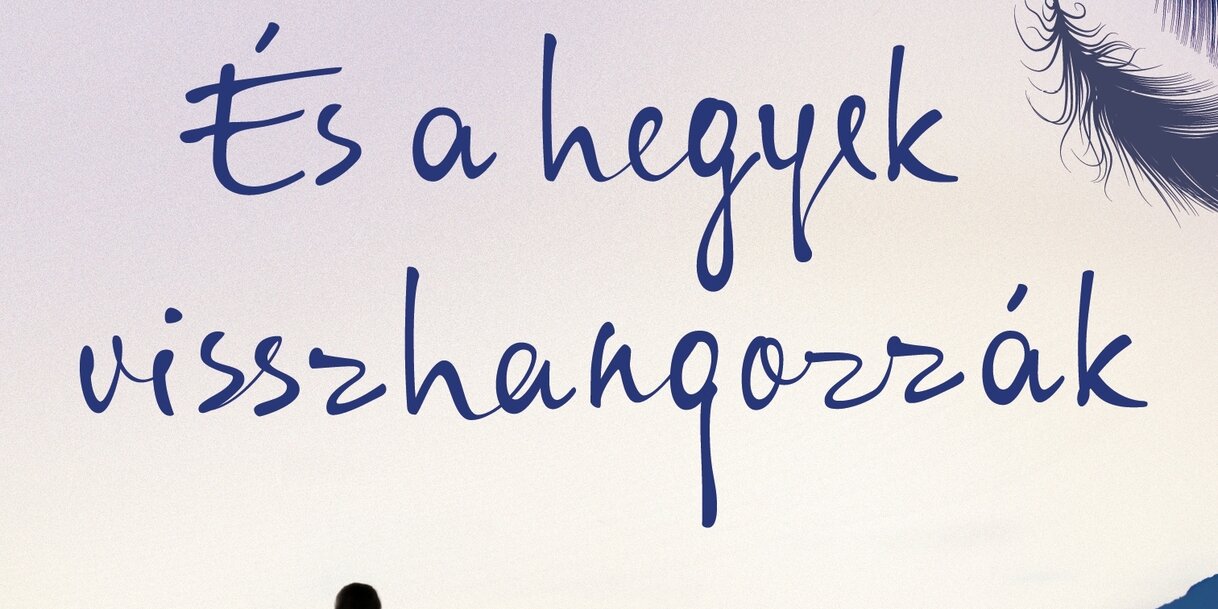 És a hegyek
visszhangozzák